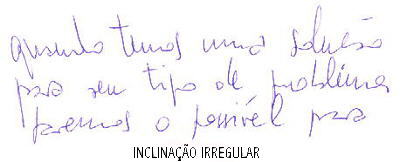 quando temos uma solução
para seu tipo de problema
faremos o possível para
INCLINAÇÃO IRREGULAR